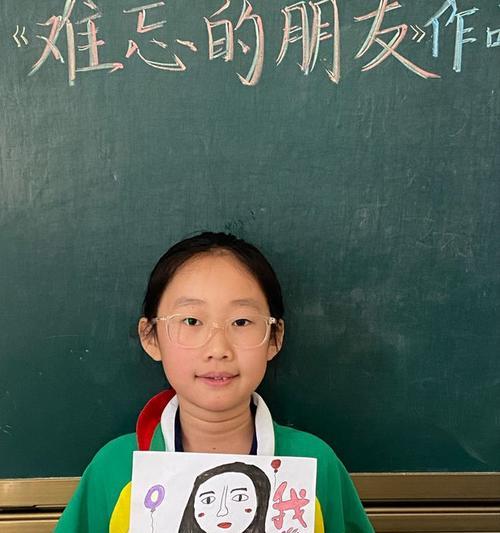 《难忘的朋友》作
我